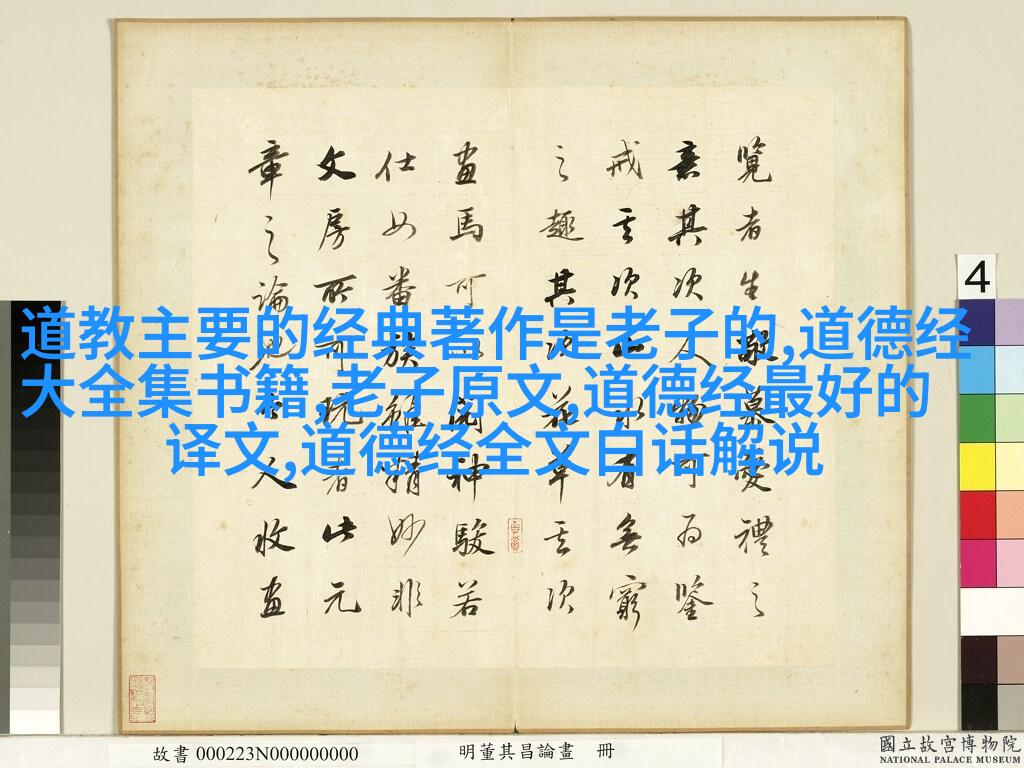 道教主要的经典著作是老子的,道德经
大全集书籍,老子原文,道德经最好的
译文,道德经全文白话解说
覽者生敬慕愛禮之
意其次人物可為鑒
戒其次山水有無窮
之趣其次花草其次
畫馬可以閱神駿若
仕女番族雖精妙非
文房所可玩者此元
章之論也今人收畫
4
故書 000223N000000000
明董其昌論畫 冊
國立故宮博物院
NATIONAL PALACE MUSEUM